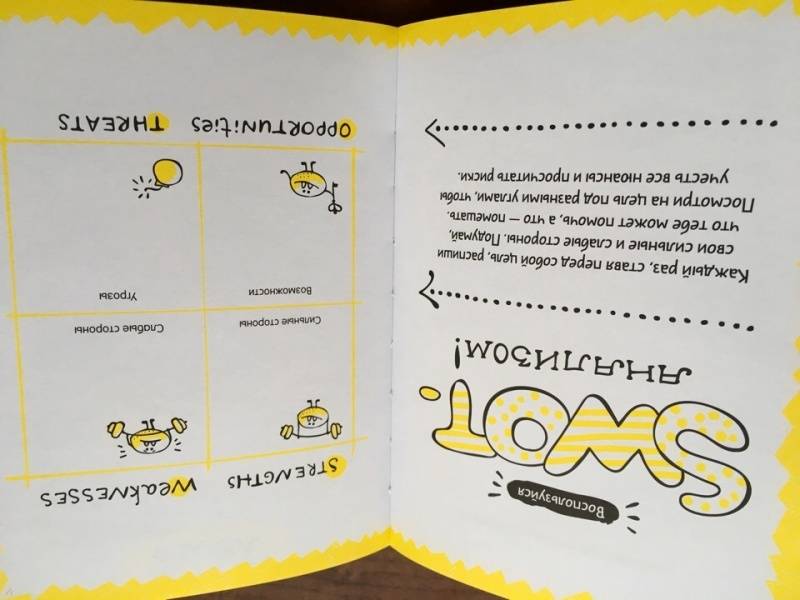 Воспользуйся
SWOT-
АНАЛИЗОМ!
Каждый раз, ставя перед собой цель, распиши
свои сильные и слабые стороны. Подумай,
что тебе может помочь, а что — помешать.
Посмотри на цель под разными углами, чтобы
учесть все нюансы и просчитать риски.
STRENGTHS WeakNESSES
Сильные стороны Слабые стороны
Возможности Угрозы
OPPORTUNiTiES THREATS